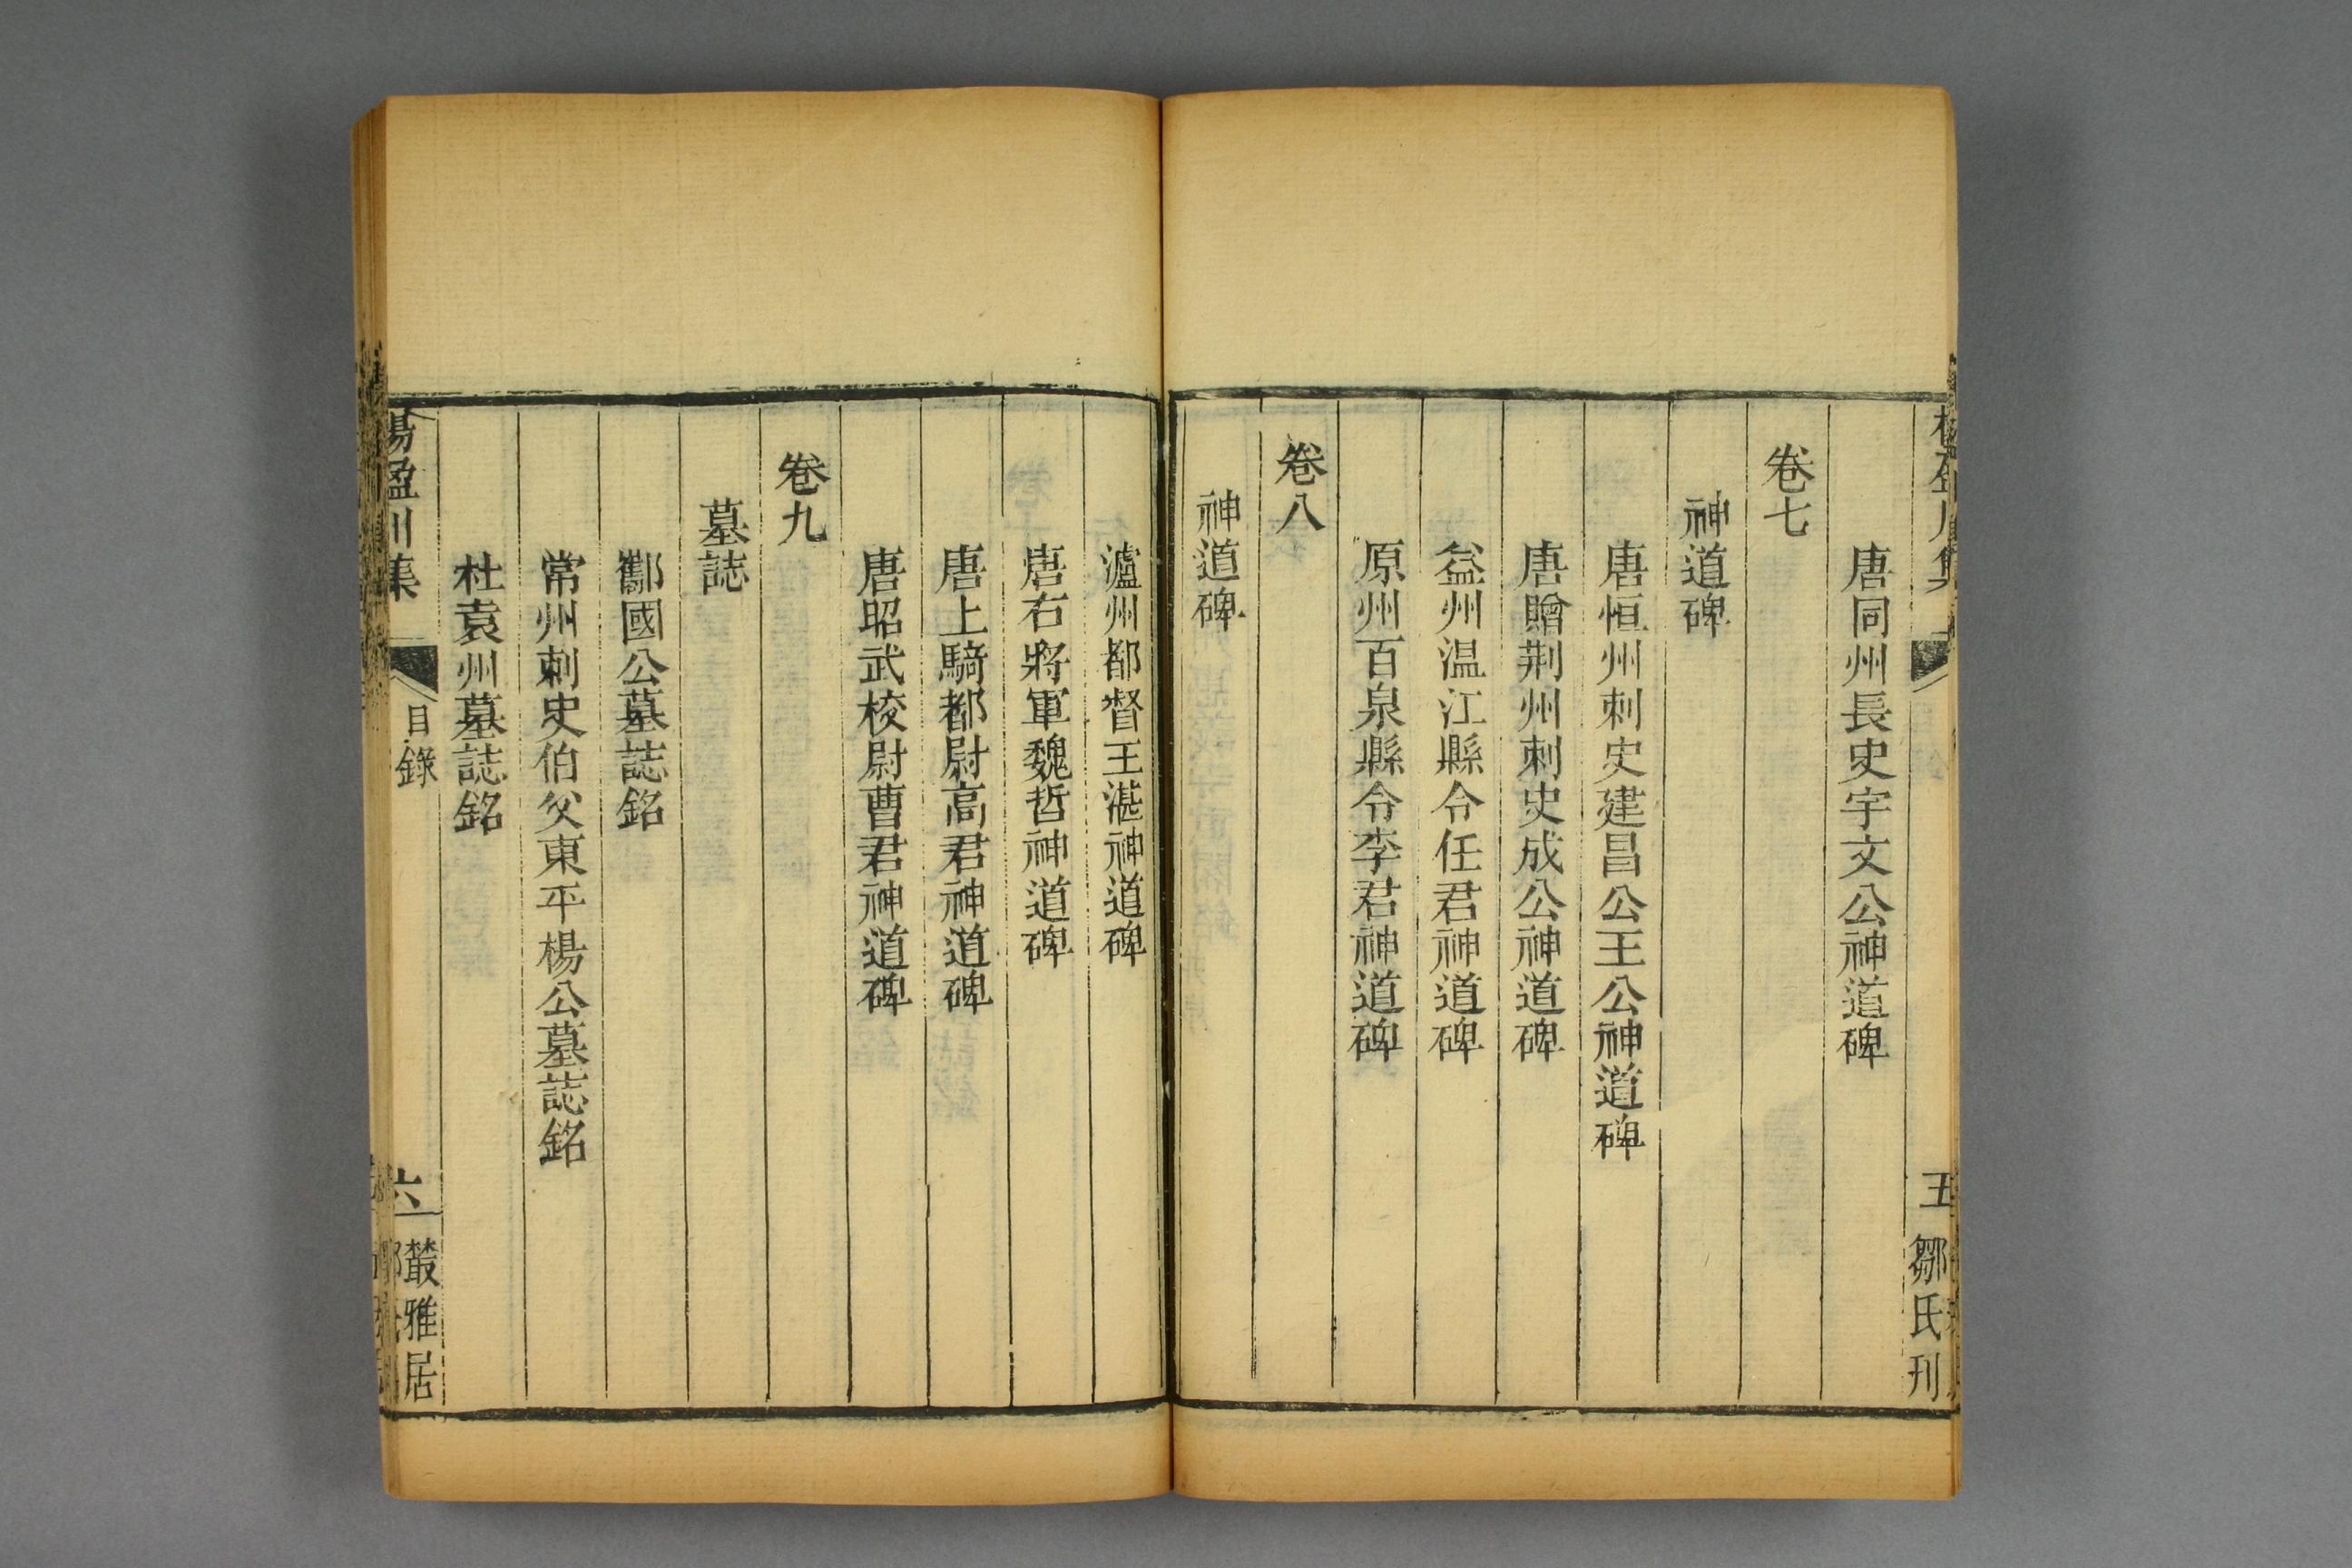 唐同州長史宇文公神道碑
卷七
神道碑
唐恒州刺史建昌公王公神道碑
唐贈荆州刺史成公神道碑
益州温江縣令任君神道碑
原州百泉縣令李君神道碑
卷八
神道碑
五
鄒氏刊
瀘州都督王湛神道碑
唐右將軍魏哲神道碑
唐上騎都尉高君神道碑
唐昭武校尉曹君神道碑
卷九
墓誌
酅國公墓誌銘
常州刺史伯父東平楊公墓誌銘
杜袁州墓誌銘
楊盈川集
目錄
六
叢雅居